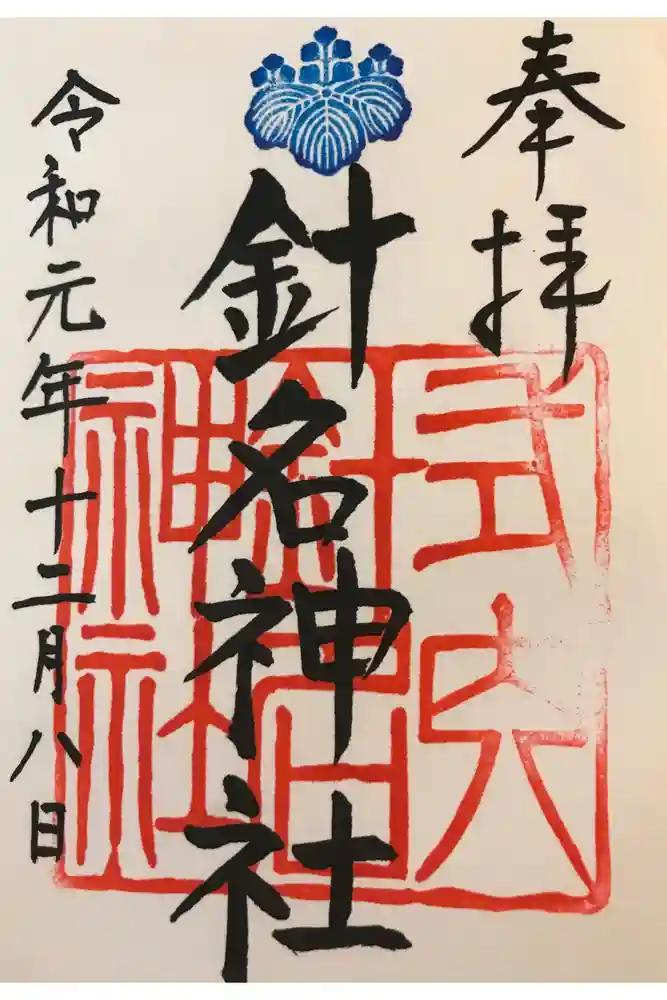 奉拝
針名神社
式内
針名神社
令和元年十二月八日